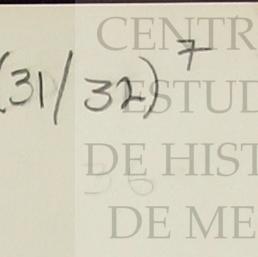 (31/32) 7
CENTR
ESTUD
DE HIST
DE ME